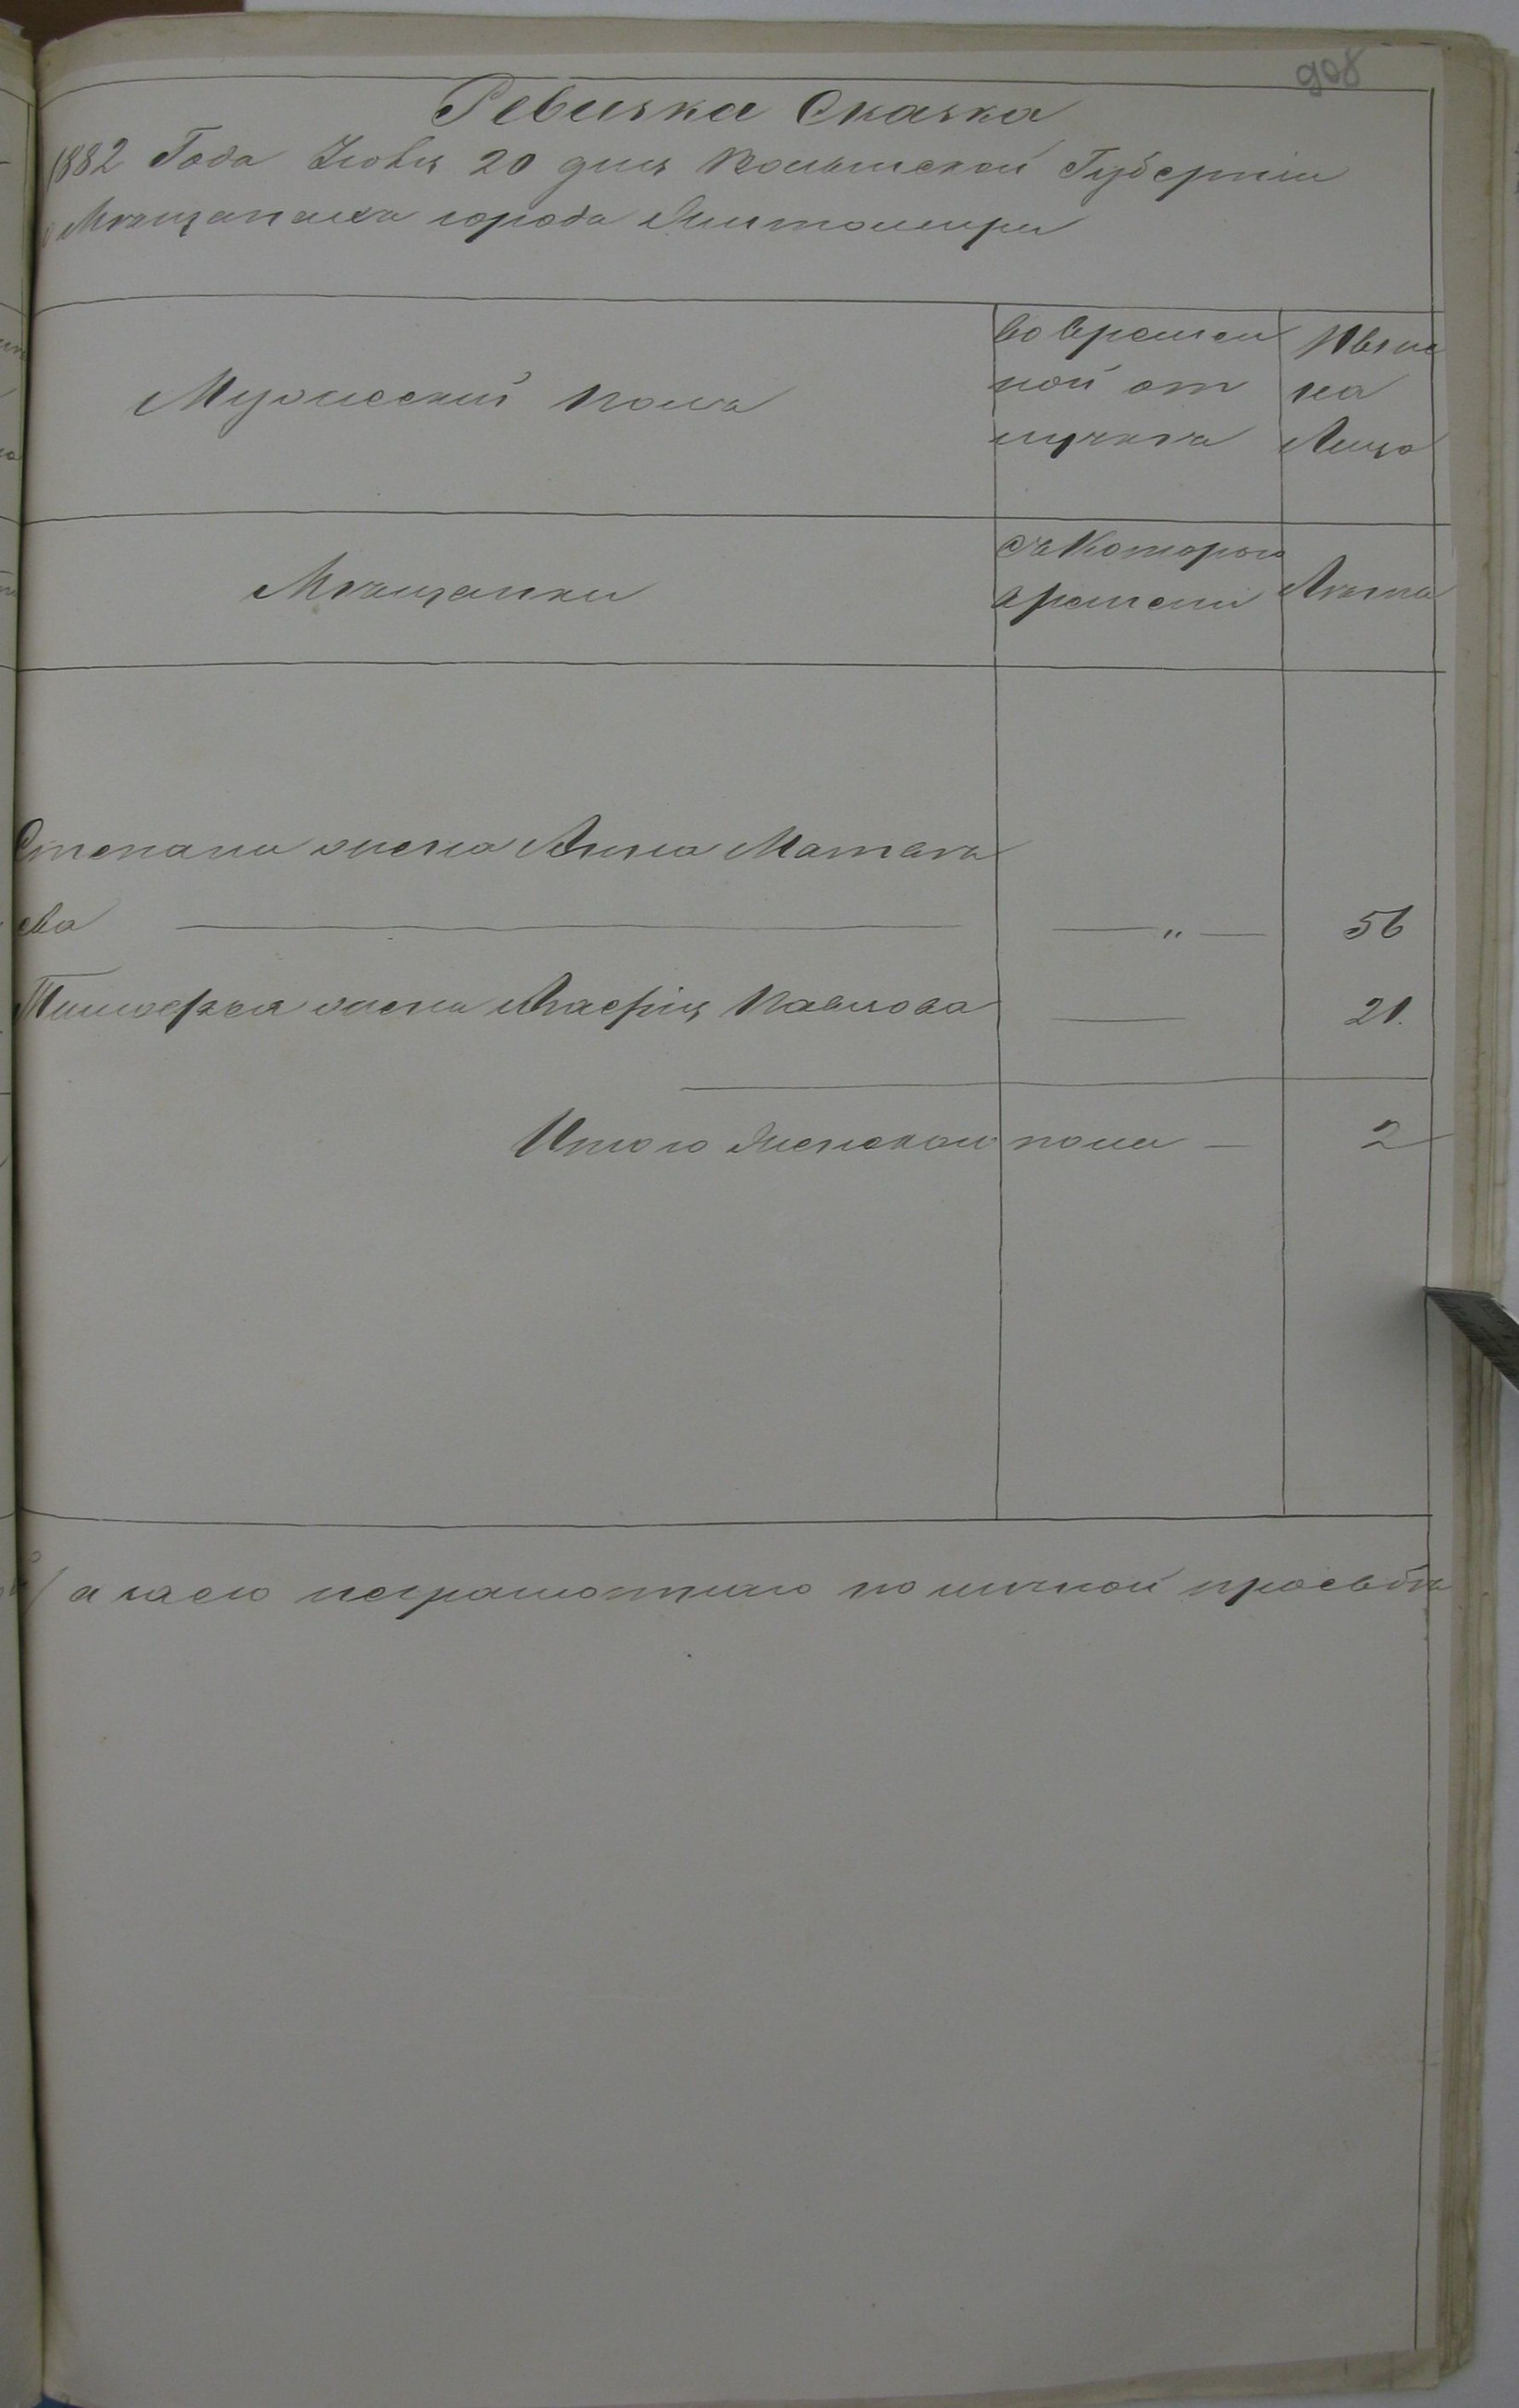 908
Ревизка Сказка
1882 Года Июня 20 дня Волынской Губернiи
о Мѣщанахъ города Житомира
Мужеский полъ
Во времен
ной от
лучкѣ
Налицо
Мѣщанки
съ Которого
времени
Лѣта
Степана жена Анна Матвѣ
ева — " — 56
Тимофея жена Марiя Павлова — 21.
Итого женскаго пола — 2
а за его неграмотного по личной просьбѣ